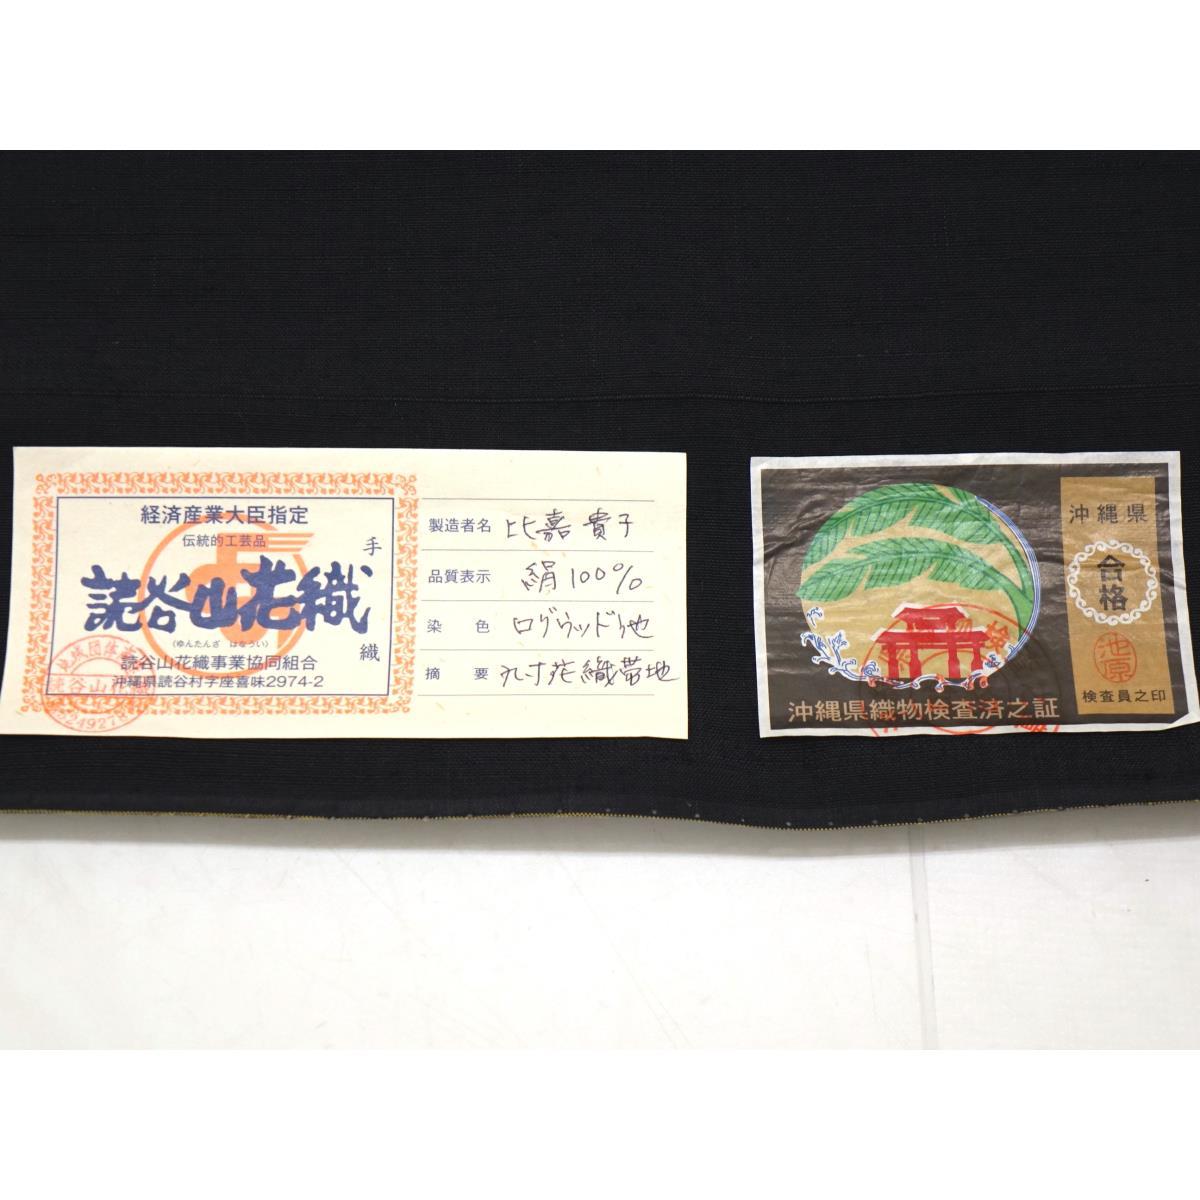 経済産業大臣指定
伝統的工芸品
手織
読谷山花織
(ゆんたんざ はなうい)
読谷山花織事業協同組合
沖縄県読谷村字座喜味2974-2
製造者名 比嘉貴子
品質表示 絹100%
染色 ログウッド他
摘要 九寸花織帯地
沖縄県
合格
池原
検査員之印
沖縄県織物検査済之証